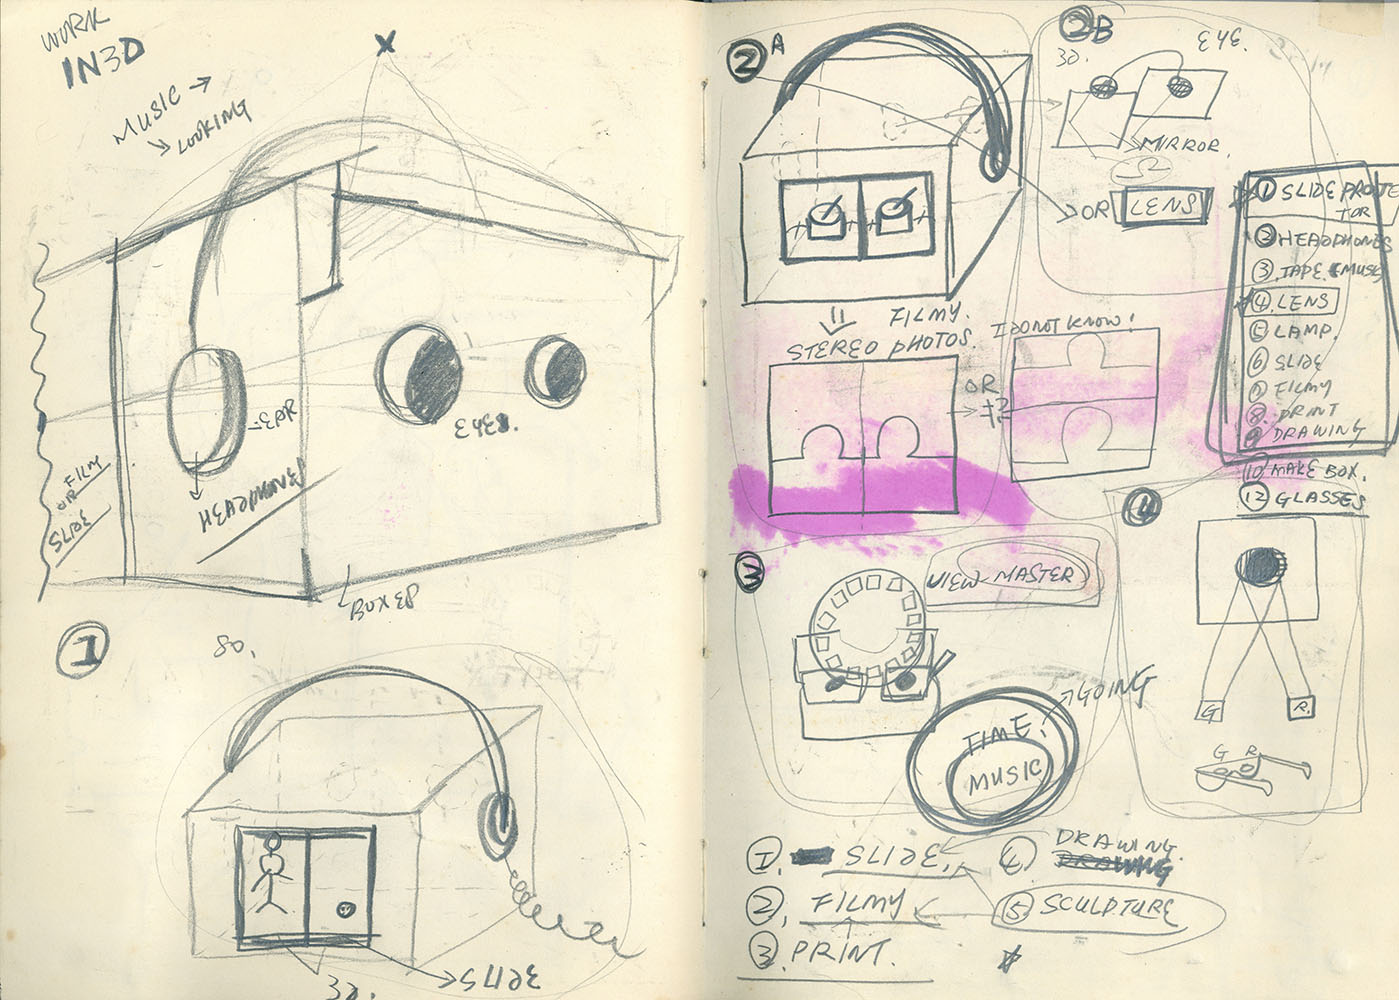 WORK
IN3D
MUSIC →
↘ LOOKING
X
EAR
EYES.
HEADPHONE
FILM
OR
SLIDE
BOXES
1
30.
3D.
LENS
2 A
FILMY.
STEREO PHOTOS.
OR
2B
3D.
EYE.
MIRROR.
OR LENS
I DO NOT KNOW!
① SLIDE PROJE
TOR
② HEADPHONES
③ TAPE (MUSIC
④ LENS
⑤ LAMP.
⑥ SLIDE
⑦ FILMY
⑧ PRINT
⑨ DRAWING
⑩ MAKE BOX.
⑫ GLASSES
3
VIEW-MASTER
TIME!
→ GOING
MUSIC
4
G
R.
G R
①. SLIDE.
②, FILMY
③. PRINT.
④ DRAWING.
DRAWING
⑤ SCULPTURE